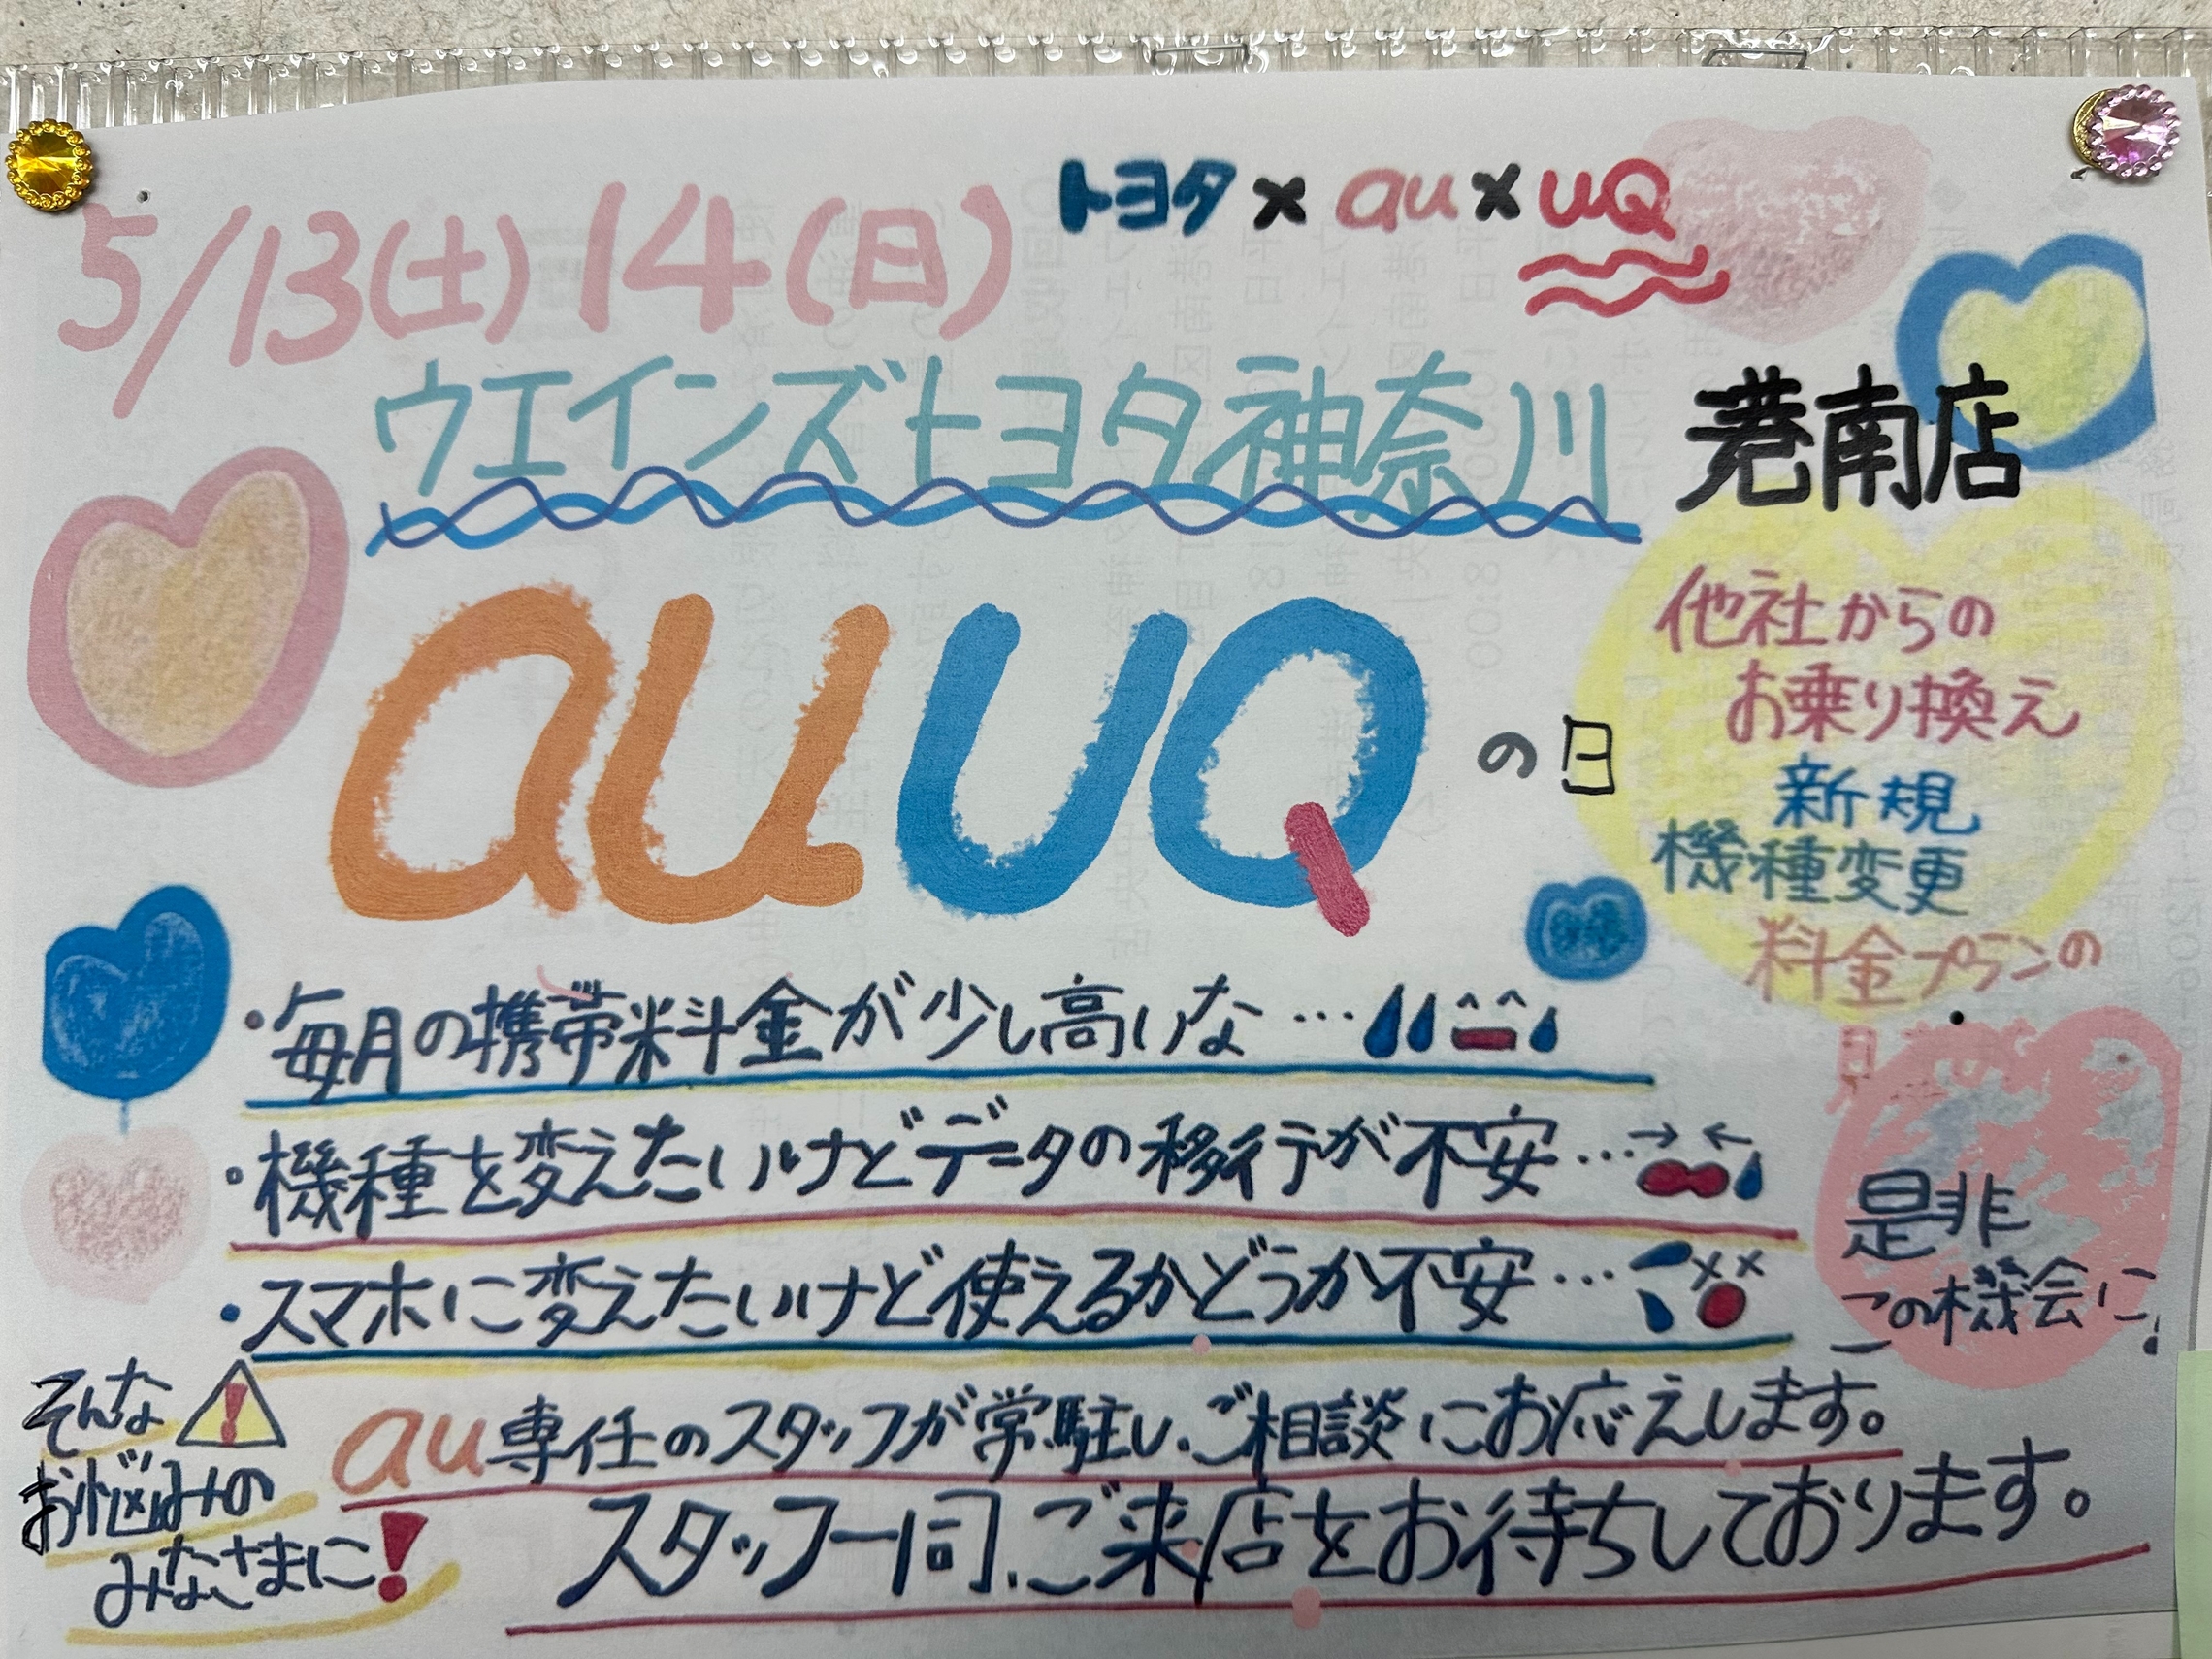 トヨタ×au×UQ
5/13(土)14(日)
ウエインズトヨタ神奈川 港南店
au UQの日
他社からの
お乗り換え
新規
機種変更
料金プランの
・毎月の携帯料金が少し高いな…
・機種を変えたいけどデータの移行が不安…
・スマホに変えたいけど使えるかどうか不安…
是非
この機会に!
そんな
お悩みの
みなさまに!
au専任のスタッフが常駐し、ご相談にお応えします。
スタッフ一同、ご来店をお待ちしております。